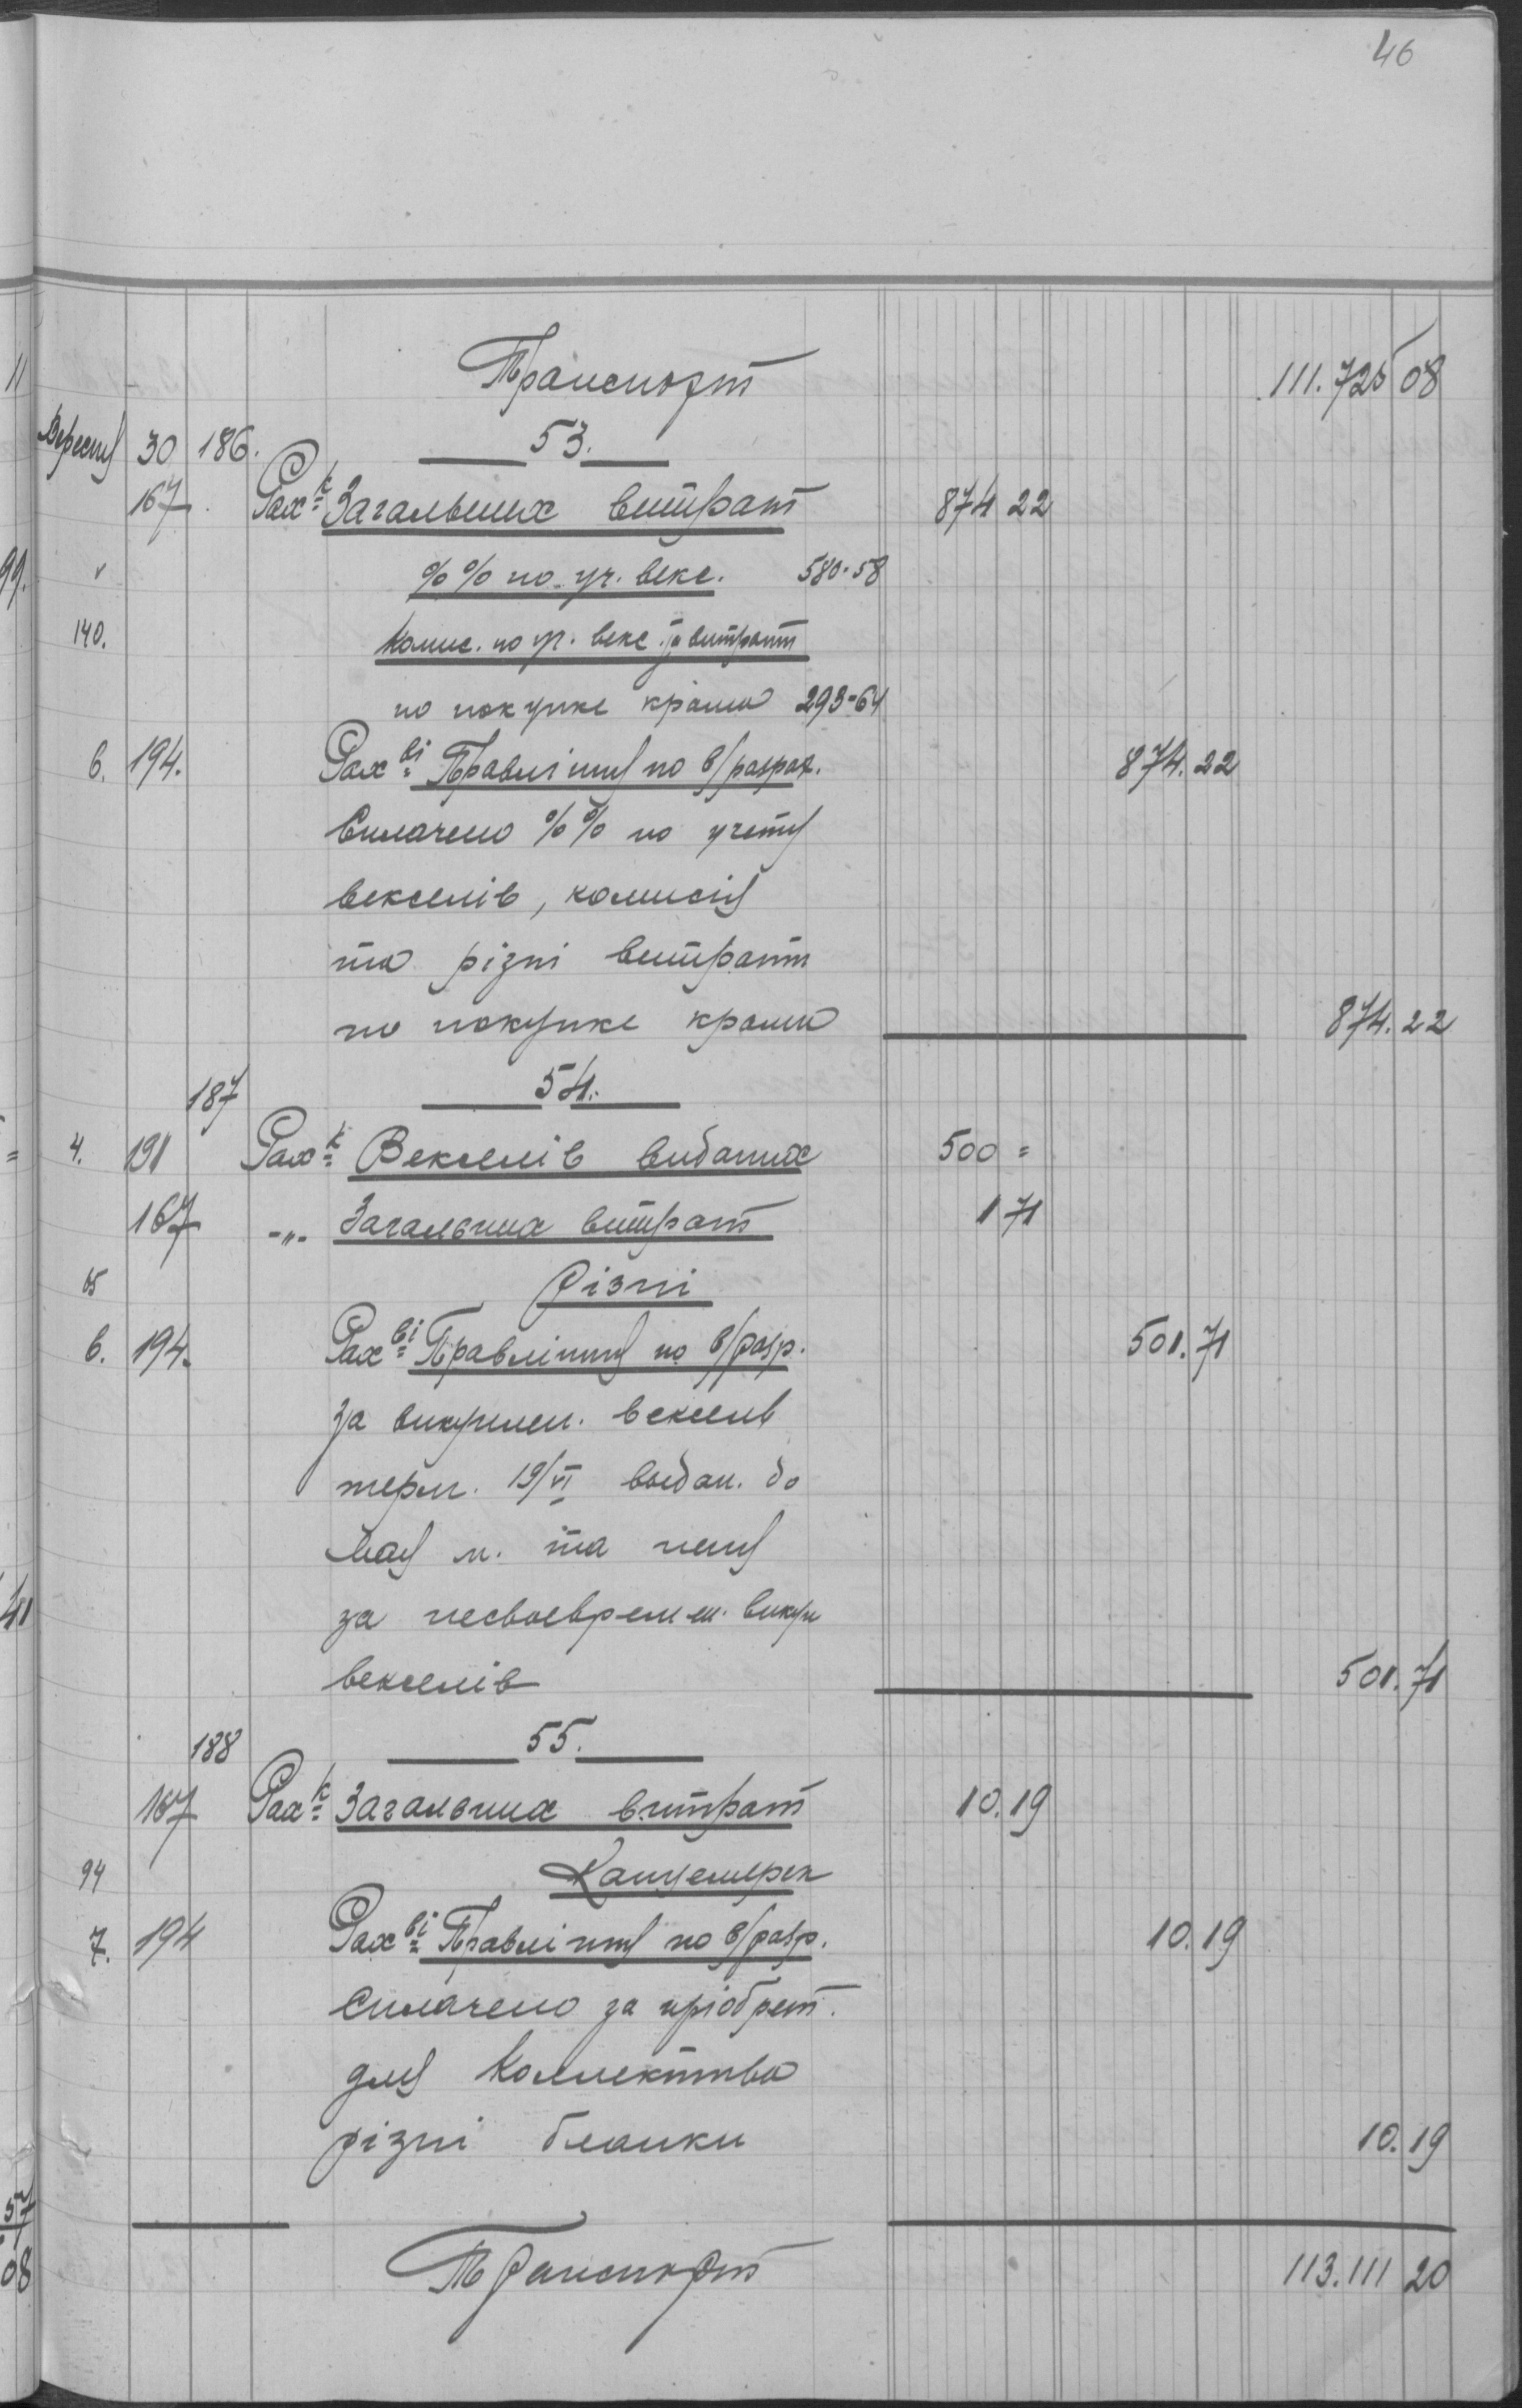 46
Транспорт 111.725 08
Вересня 30 186. 53.
167 Рах-к Загальних витрат 874 22
%% по уч. векс. 580-58
140. Комис. по уч. векс. та витрати
по покупке крама 293-64
6. 194. Рах-ві Правління по в/разрах. 874.22
Сплачено %% по учету
векселів, комисія
та різні витрати
по покупке крама 874.22
187 54.
4. 191 Рах-к Векселів виданих 500 =
167 -„- Загальних витрат 1 71
65 Різні
6. 194. Рах-ві Правління по в/разр. 501.71
За викуплен. векселів
терм. 19/VI выдан. до
та пеня
за несвоевремен. викуп
векселів 501.71
188 55.
167 Рах-к Загальних витрат 10.19
94 Канцелярск
7. 194 Рах-ві Правління по в/разр. 10.19
Сплачено за пріобрет.
для Коллектива
різні бланки 10.19
Транспорт 113.111 20